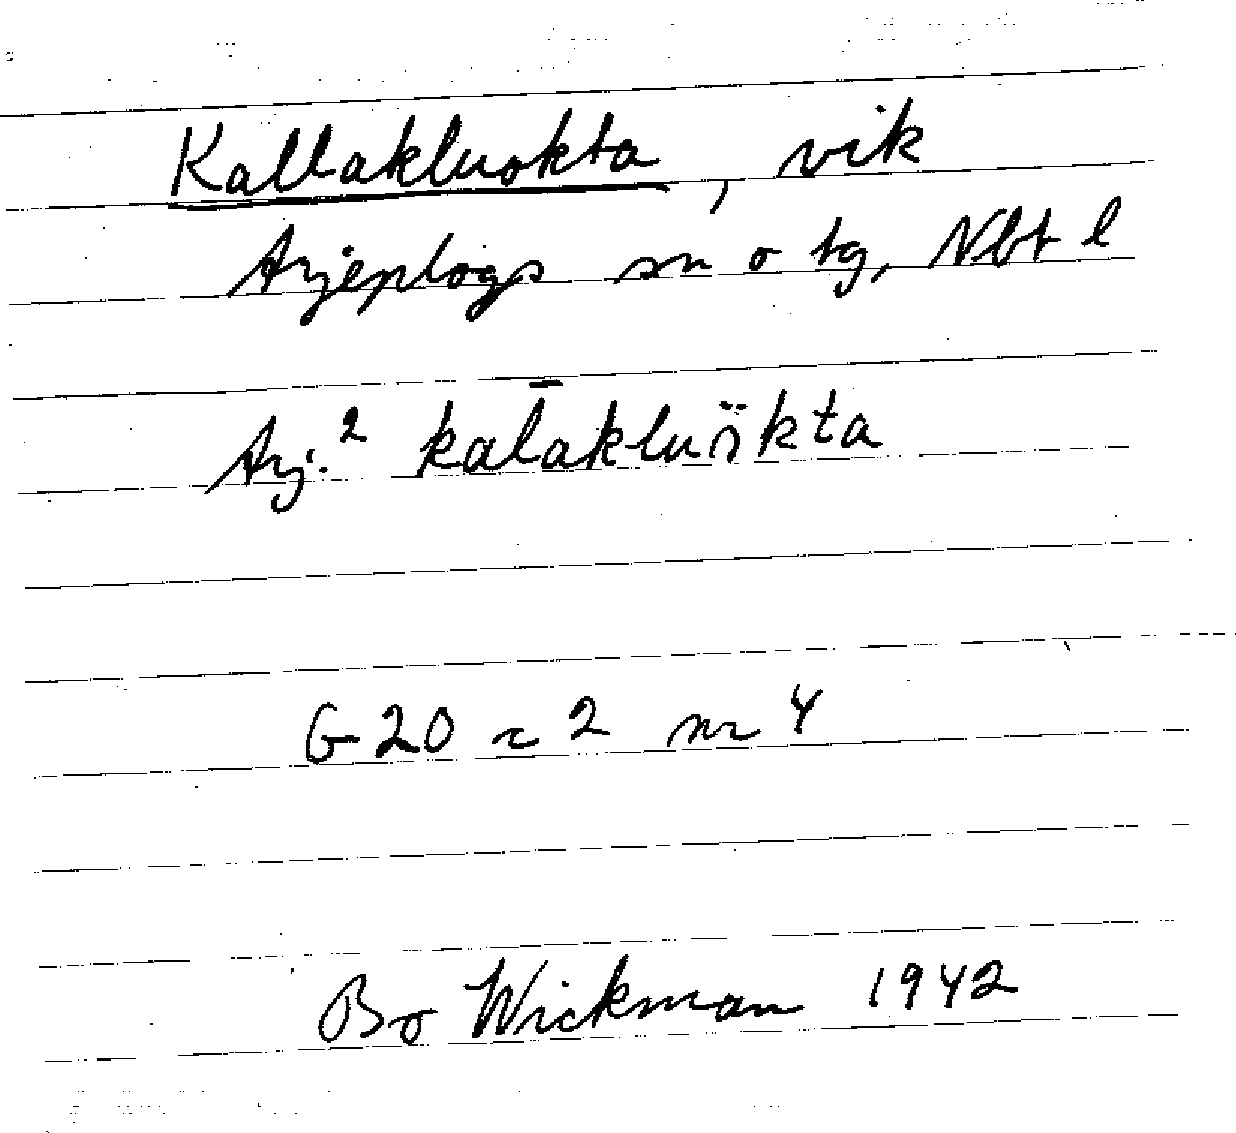 Kallakluokta, vik
Arjeplogs sn o tg, Nbt l
Arj.² kal̄akluö̀kta
G20 r 2 nr 4
Bo Wickman 1942